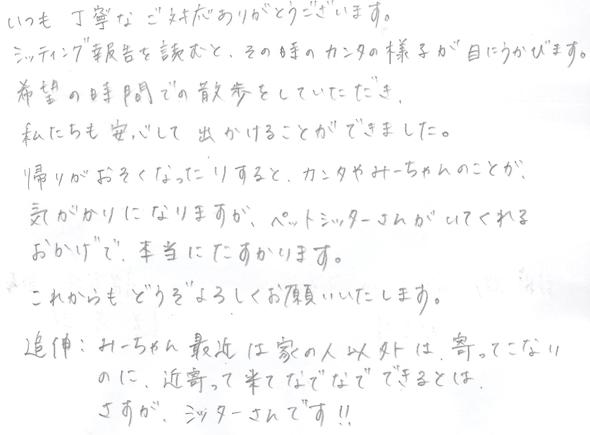 いつも丁寧なご対応ありがとうございます。
シッティング報告を読むと、その時のカンタの様子が目にうかびます。
希望の時間での散歩をしていただき、
私たちも安心して出かけることができました。
帰りがおそくなったりすると、カンタやみーちゃんのことが、
気がかりになりますが、ペットシッターさんがいてくれる
おかげで、本当にたすかります。
これからもどうぞよろしくお願いいたします。
追伸：みーちゃん最近は家の人以外は、寄ってこない
のに、近寄って来てなでなでできるとは、
さすが、シッターさんです!!